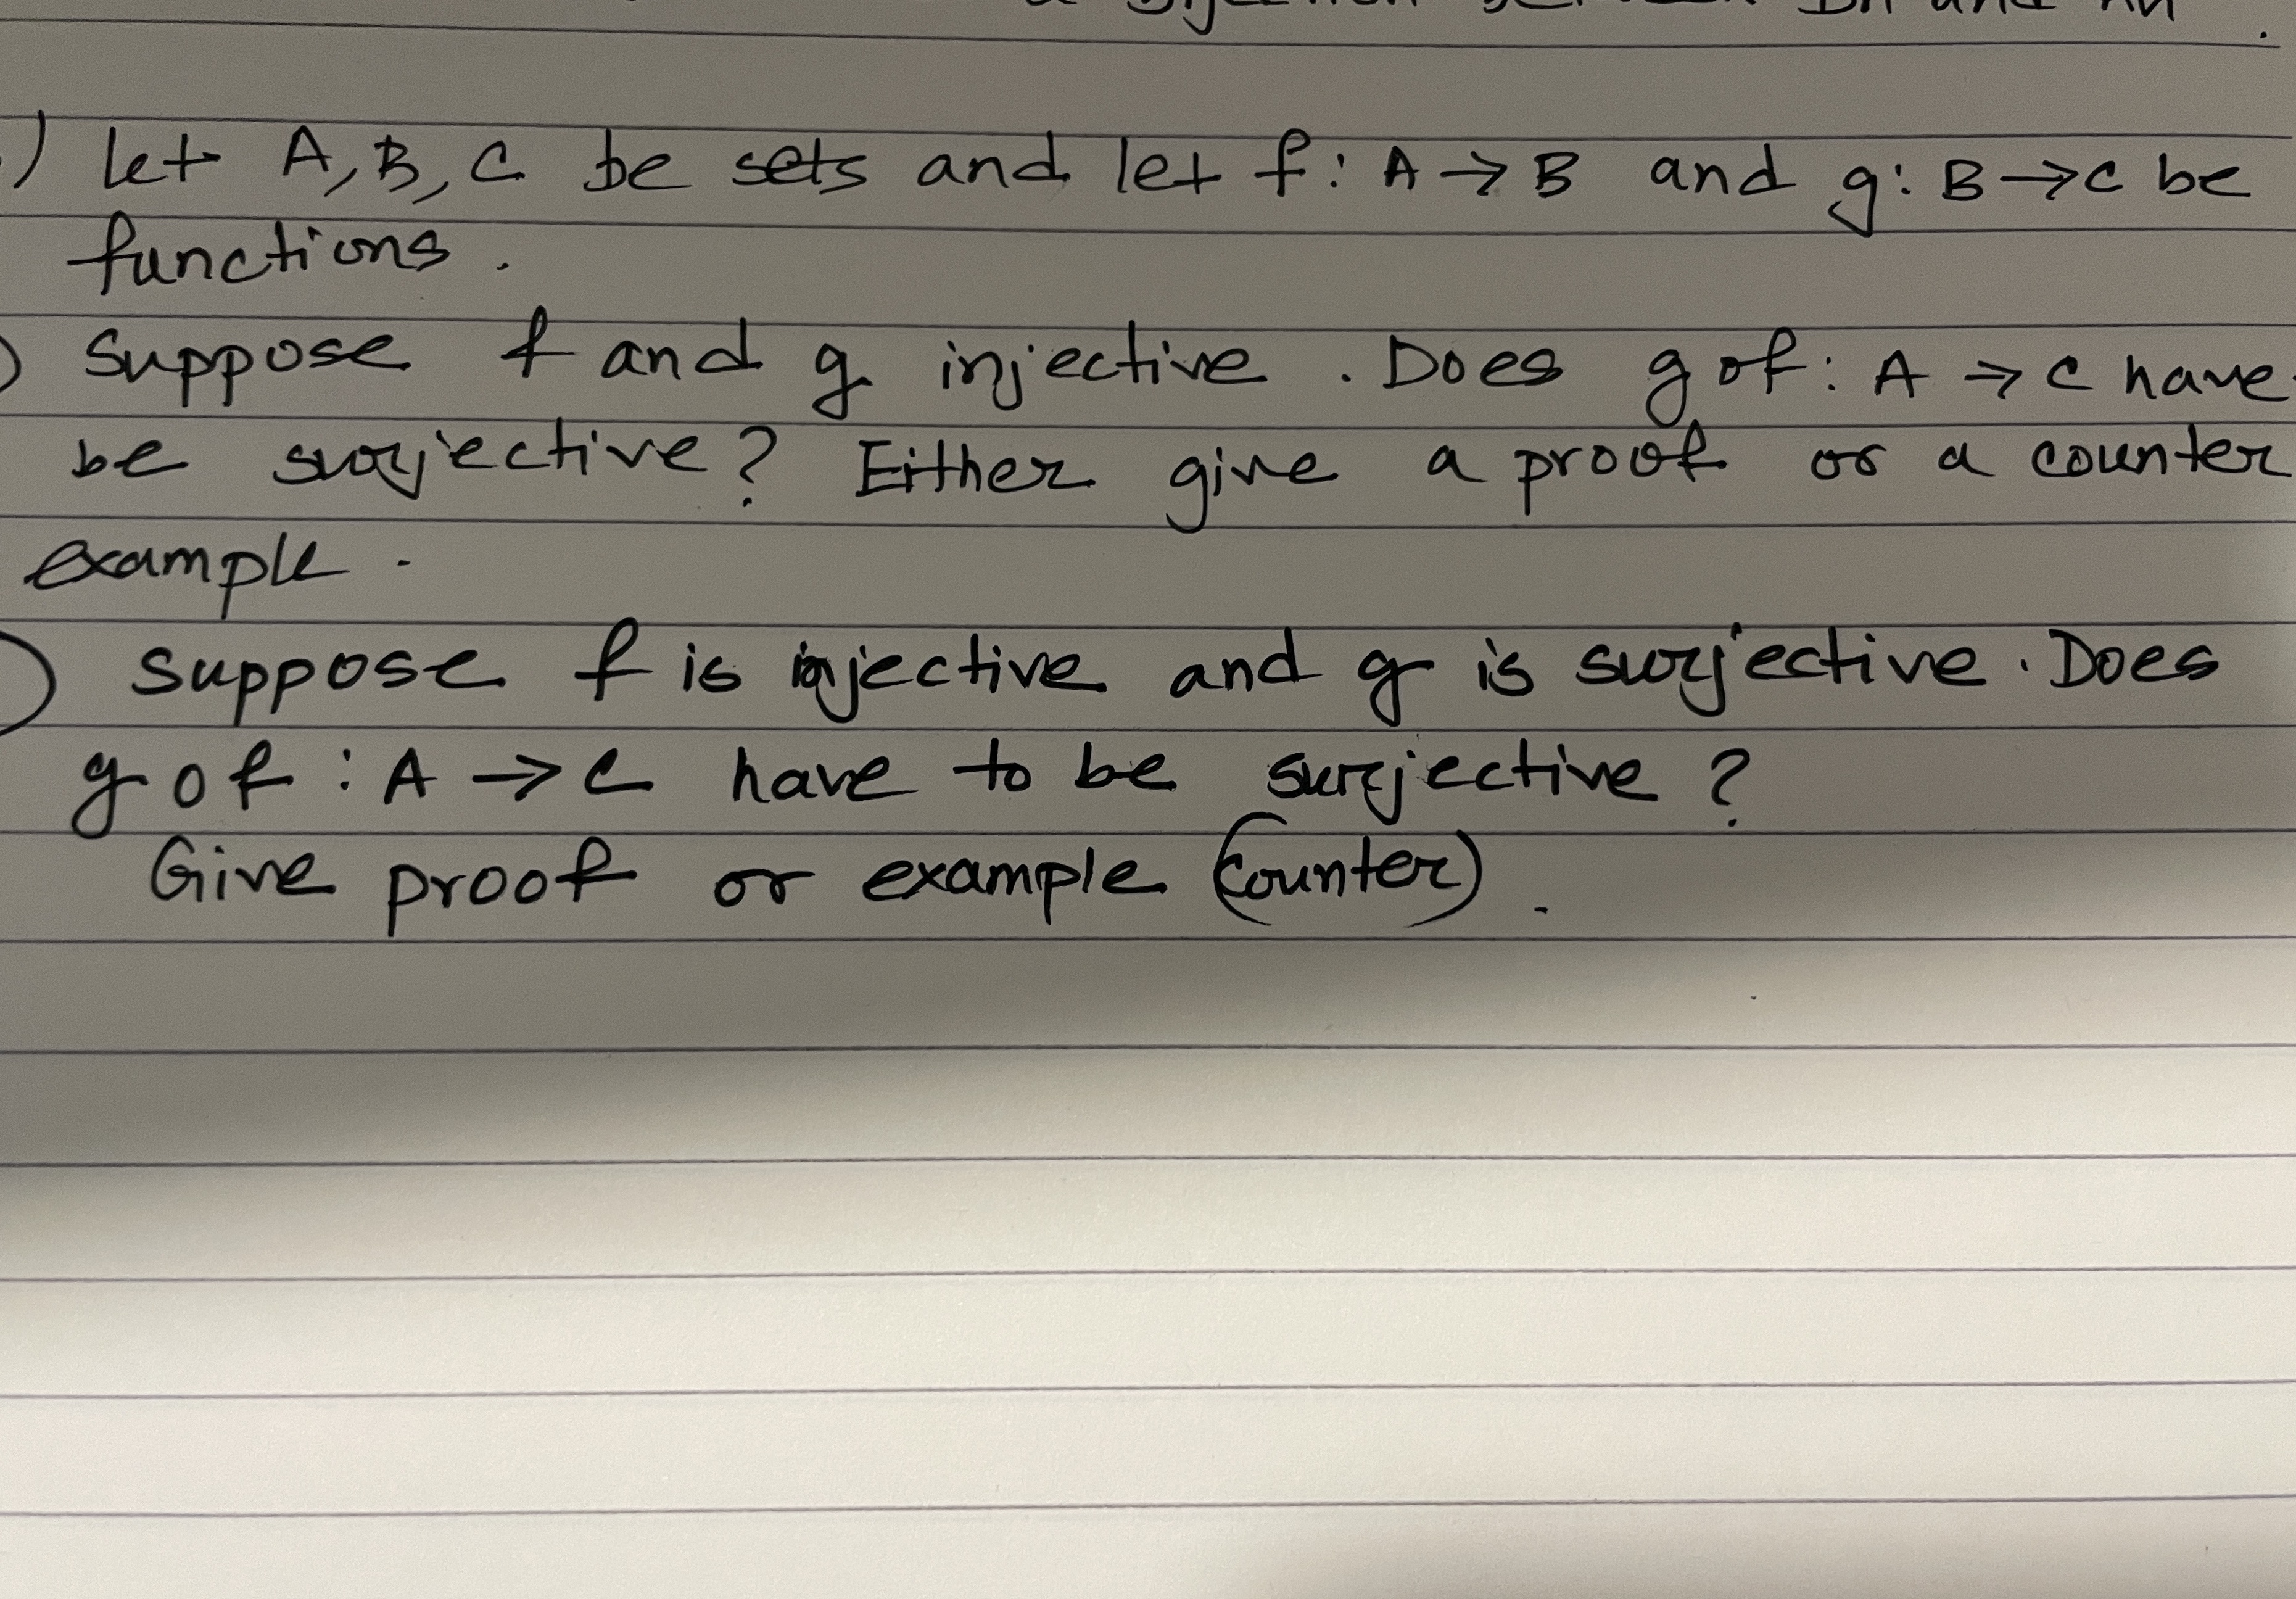 a bijection between Bn and An .
) let A, B, C be sets and let f: A → B and g: B → C be
functions.
) Suppose f and g injective. Does g o f: A → C have
be surjective? Either give a proof or a counter
example.
) Suppose f is injective and g is surjective. Does
g o f : A → C have to be surjective?
Give proof or example (counter).